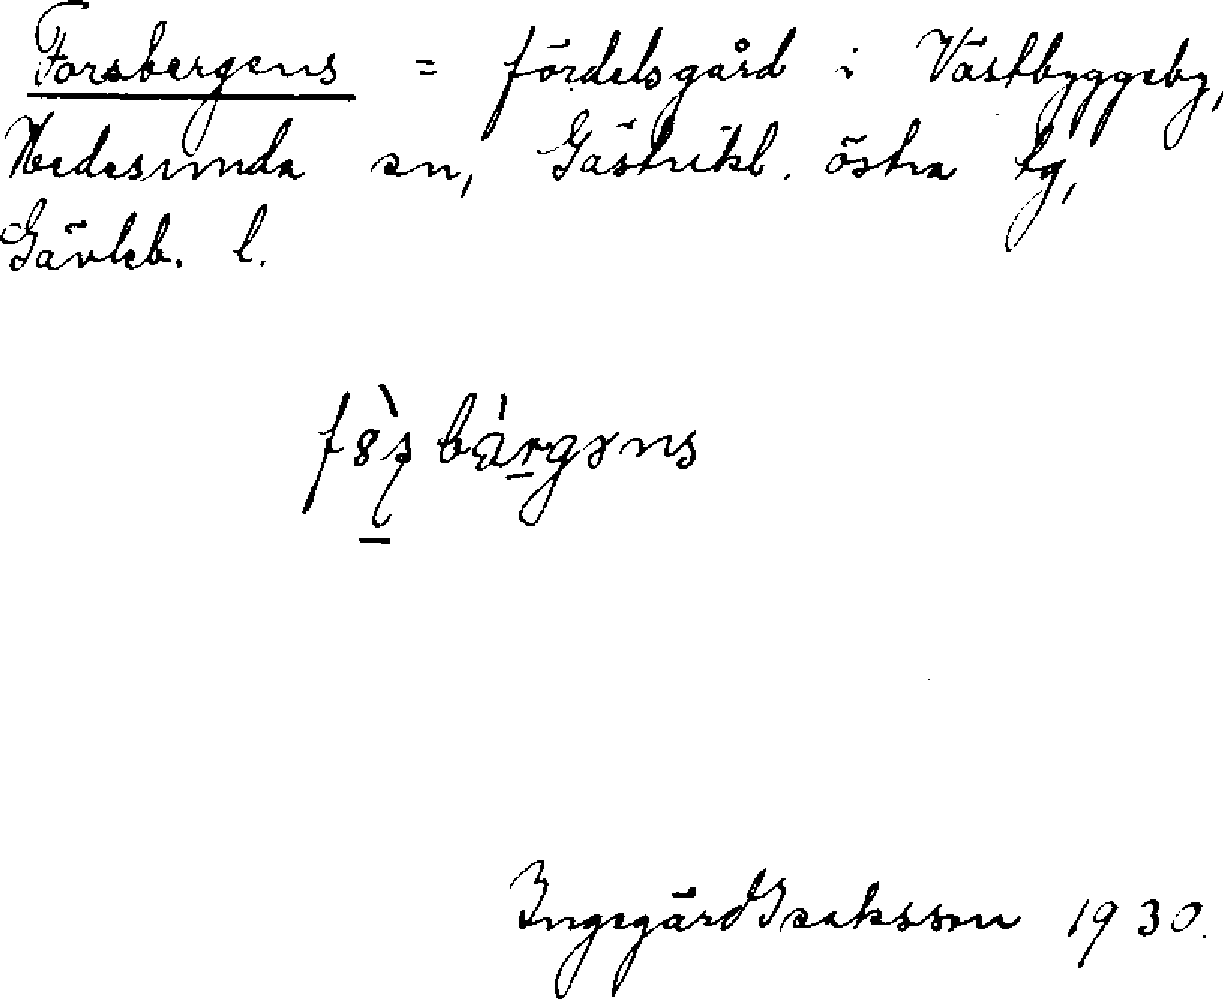 Forsbergens = fördelsgård i Västbyggeby,
Hedesunda sn, Gästrikl. östra tg,
Gävleb. l.
Ingegärd Isaksson 1930.